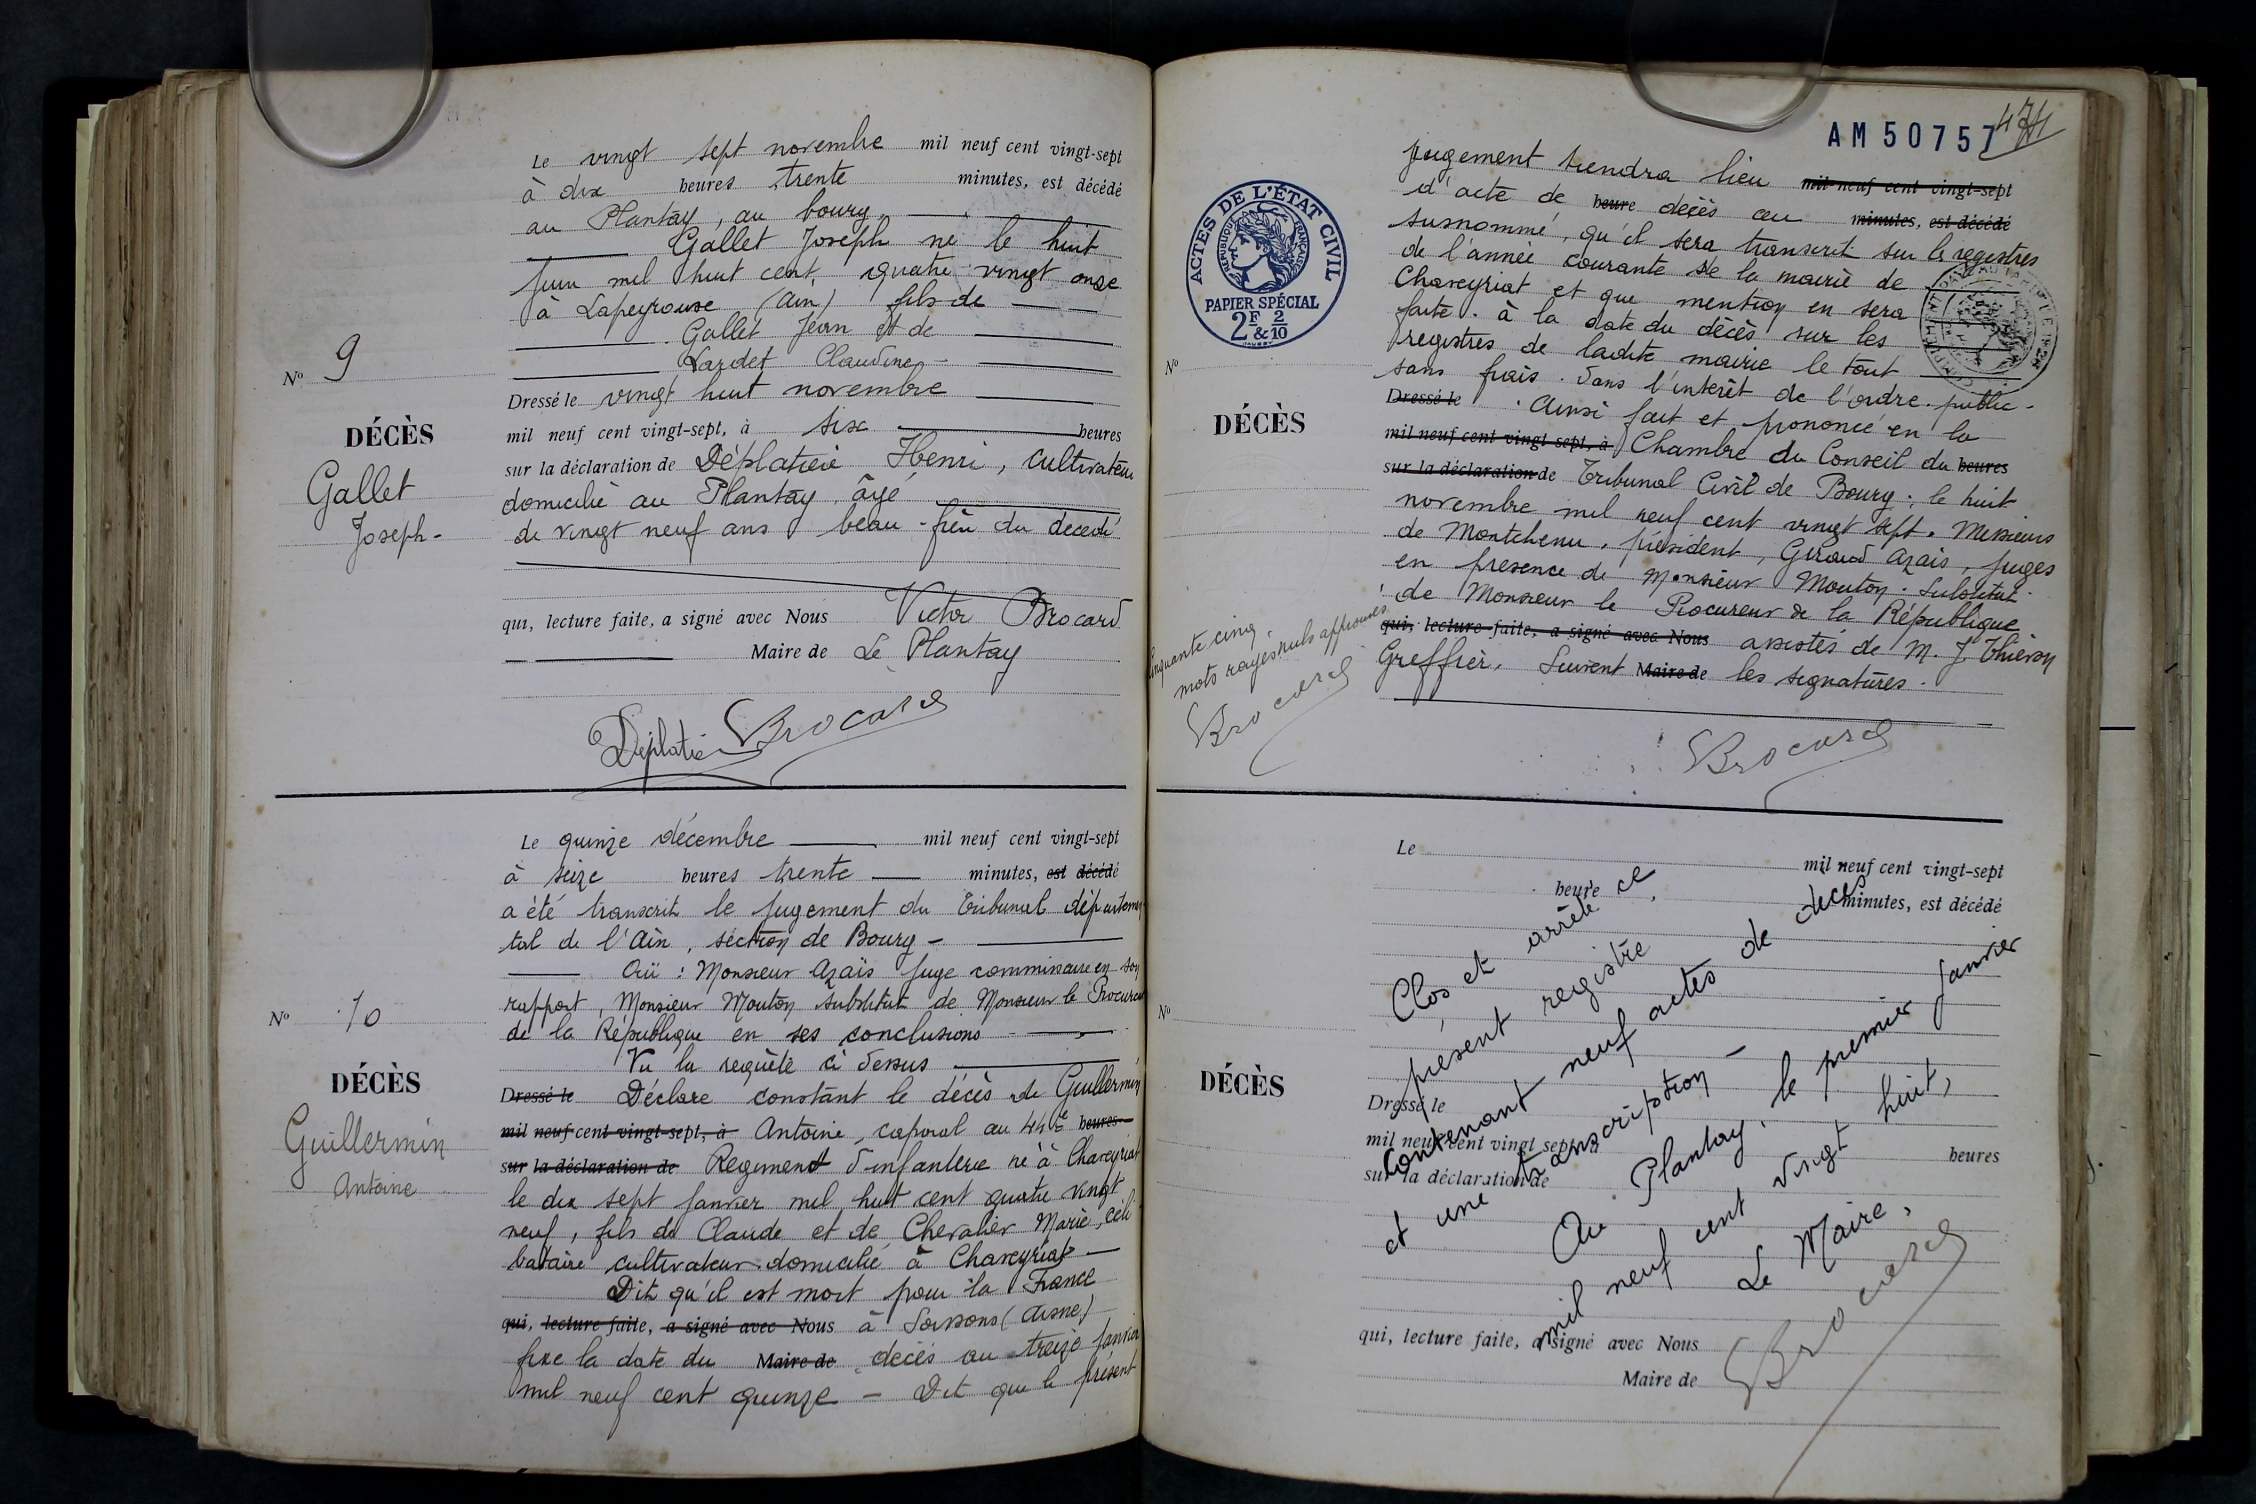 Le vingt sept novembre mil neuf cent vingt-sept
à dix heures trente minutes, est décédé
au Plantay, au bourg,
Gallet Joseph né le huit
juin mil huit cent quatre vingt onze
à Lapeyrouse (Ain) fils de
Gallet Jean et de
Lardet Claudine -
Nº 9
DÉCÈS
Gallet
Joseph -
Dressé le vingt huit novembre
mil neuf cent vingt-sept, à six heures
sur la déclaration de Déplatière Henri, cultivateur
domicilié au Plantay, âgé
de vingt neuf ans beau-frère du décédé
qui, lecture faite, a signé avec Nous Victor Brocard
Maire de Le Plantay
Déplatié Brocard
Le quinze décembre mil neuf cent vingt-sept
à seize heures trente minutes, est décédé
a été transcrit le jugement du Tribunal départemen
tal de l'Ain, section de Bourg -
Ouï : Monsieur Azaïs juge commissaire en son
rapport, Monsieur Mouton substitut de Monsieur le Procureur
de la République en ses conclusions
Vu la requête ci dessus
Nº 10
DÉCÈS
Guillermin
Antoine
Dressé le Déclare constant le décès de Guillermin
mil neuf cent vingt-sept, à Antoine, caporal au 44e heures
sur la déclaration de Régiment d'infanterie né à Chaveyriat
le dix sept janvier mil huit cent quatre vingt
neuf, fils de Claude et de Chevalier Marie, céli
bataire cultivateur domicilié à Chaveyriat
Dit qu'il est mort pour la France
qui, lecture faite, a signé avec Nous à Soissons (Aisne)
fixe la date du Maire de décès au treize janvier
mil neuf cent quinze - Dit que le présent
AM 50757
ACTES DE L'ÉTAT CIVIL
RÉPUBLIQUE FRANÇAISE
PAPIER SPÉCIAL
2F & 2/10
jugement tiendra lieu mil neuf cent vingt-sept
d'acte de heure décès au minutes, est décédé
susnommé, qu'il sera transcrit sur les registres
de l'année courante de la mairie de
Chaveyriat et que mention en sera
faite à la date du décès sur les
registres de ladite mairie le tout
sans frais. dans l'intérêt de l'ordre public -
Nº
DÉCÈS
Dressé le Ainsi fait et prononcé en la
mil neuf cent vingt sept, à Chambre du Conseil du heures
sur la déclaration de Tribunal Civil de Bourg, le huit
novembre mil neuf cent vingt sept. Messieurs
de Montchenu, président, Giraud Azaïs, juges
en présence de Monsieur Mouton. Substitut
de Monsieur le Procureur de la République
qui, lecture faite, a signé avec Nous assistés de M. J. Thiévon
Greffier. Suivent Maire de les signatures.
Cinquante cinq
mots rayés nuls approuvés
Brocard
Brocard
Le mil neuf cent vingt-sept
heure minutes, est décédé
Nº
DÉCÈS
Dressé le
mil neuf cent vingt sept, à heures
sur la déclaration de
qui, lecture faite, a signé avec Nous
Maire de
Clos et arrêté ce
présent registre
contenant neuf actes de décès
et une transcription -
Au Plantay, le premier janvier
mil neuf cent vingt huit,
Le Maire,
Brocard